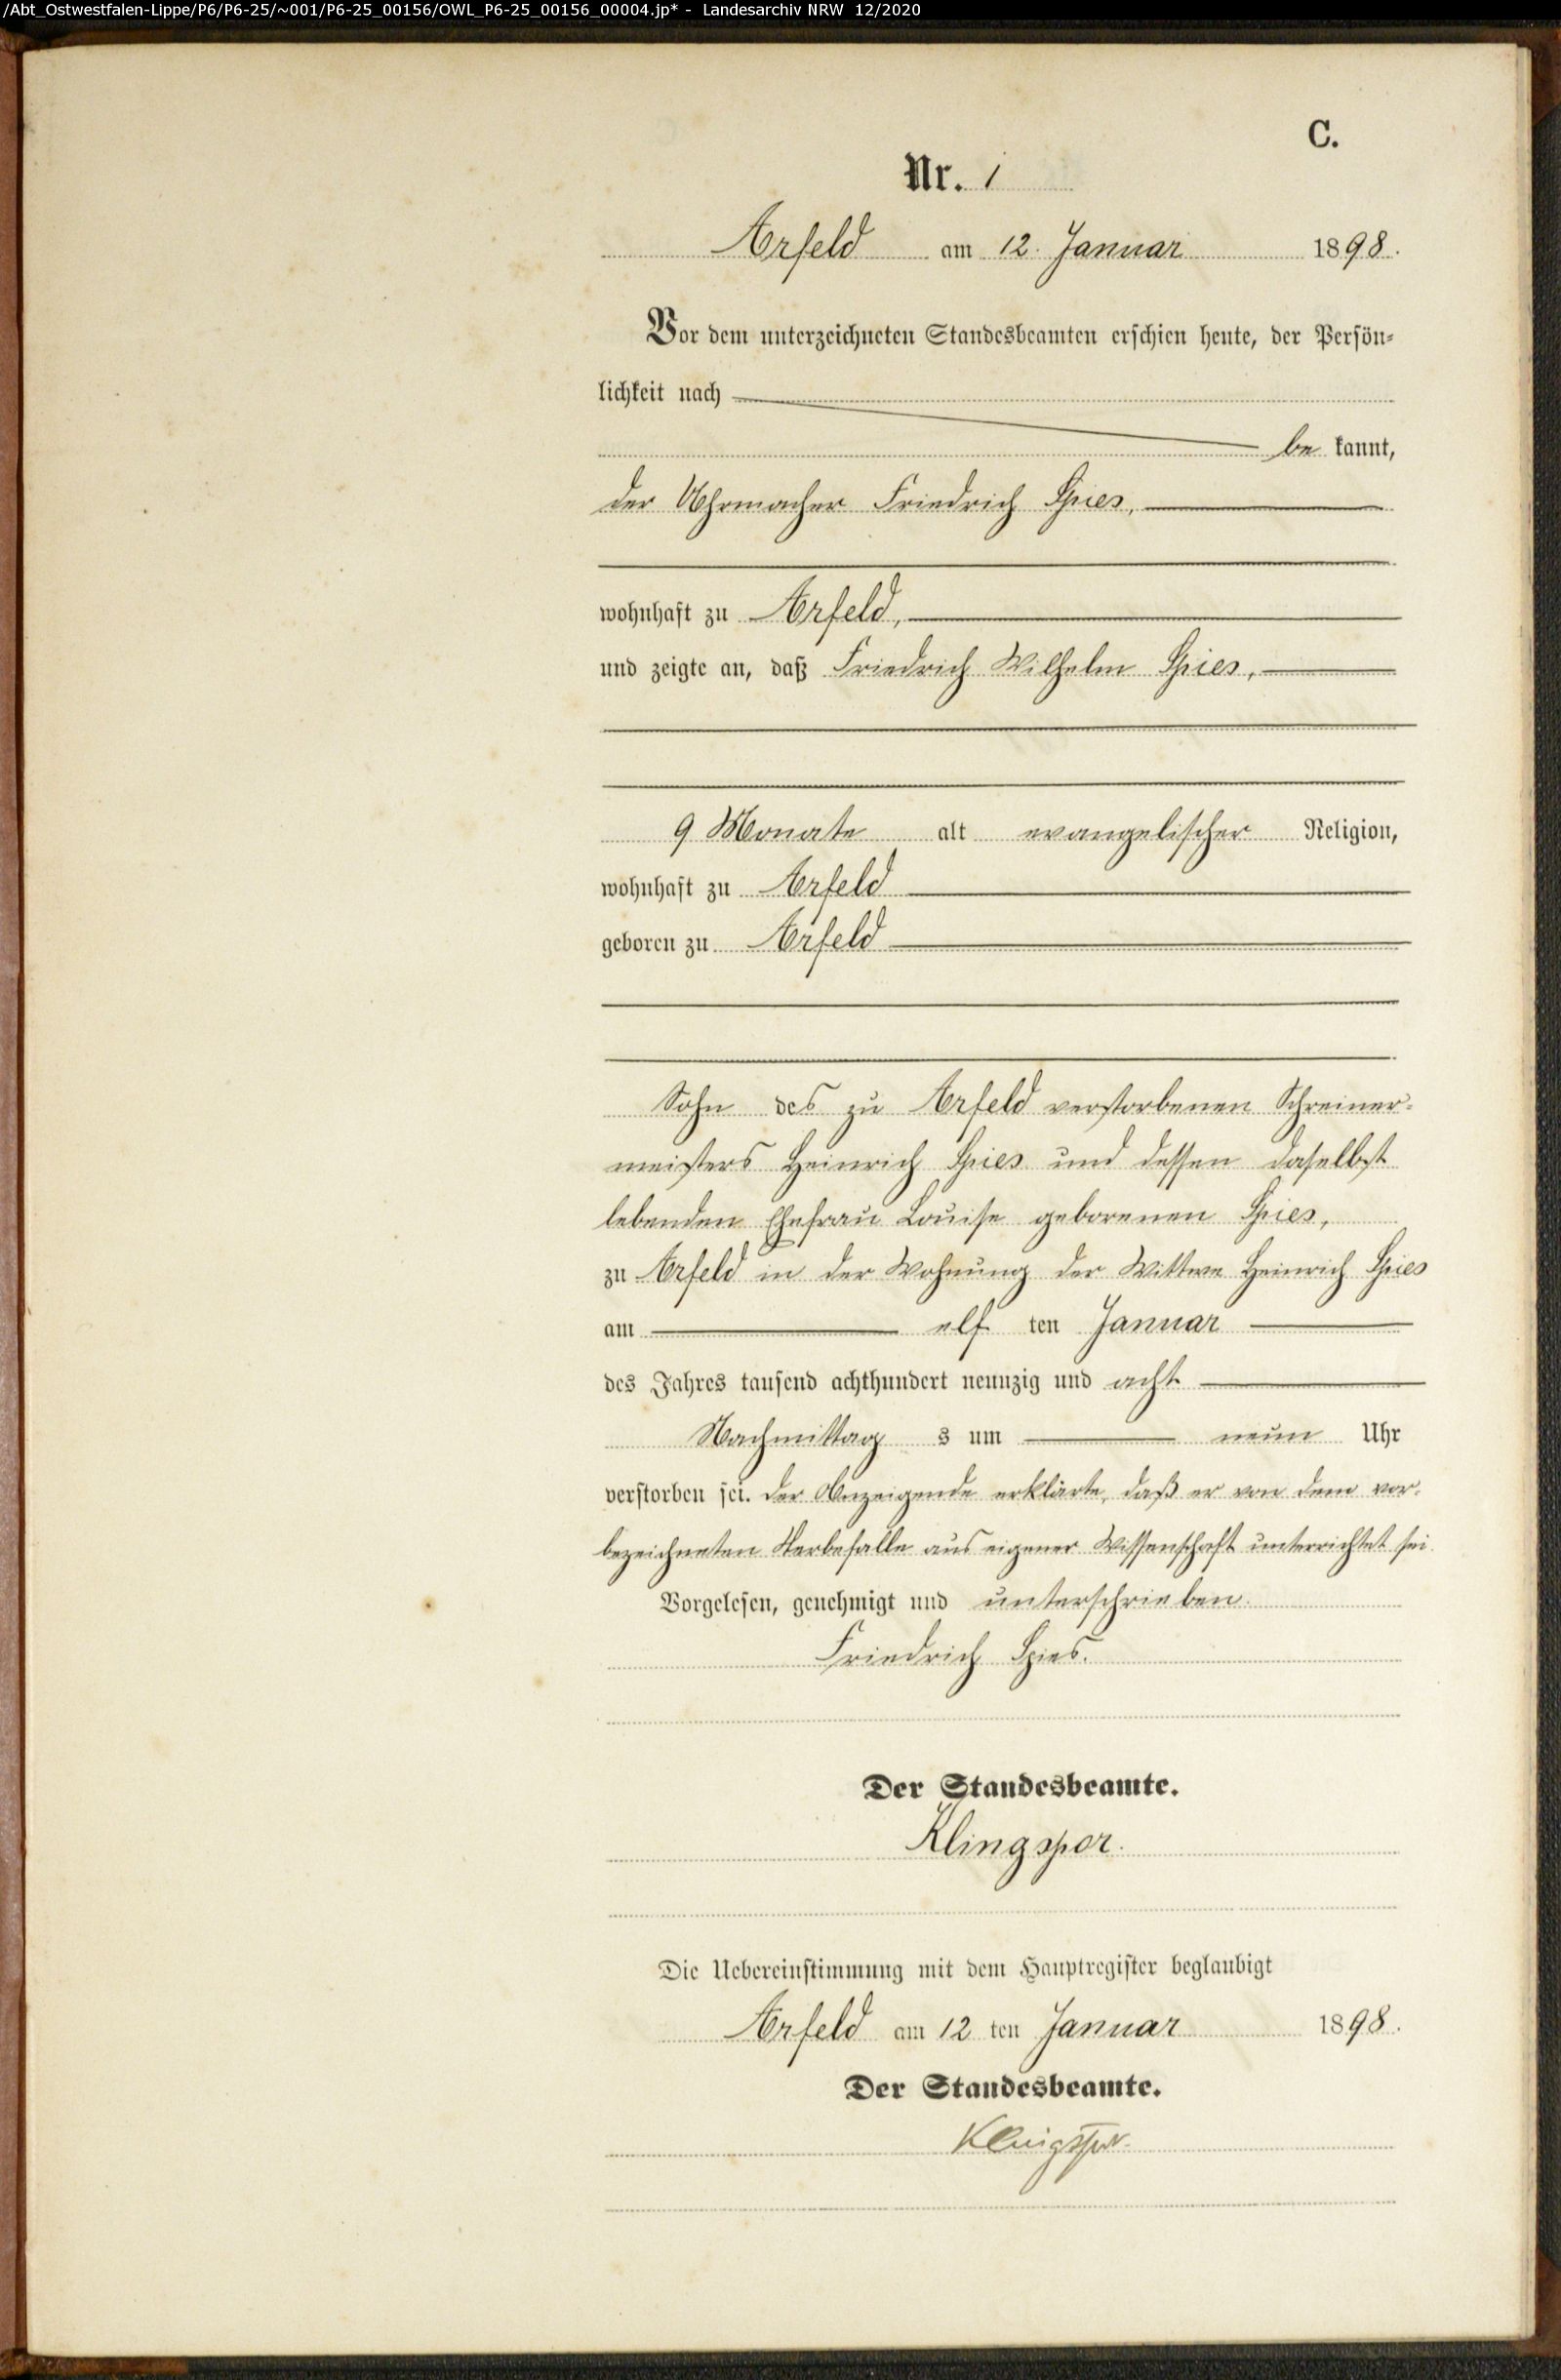 /Abt_Ostwestfalen-Lippe/P6/P6-25/~001/P6-25_00156/OWL_P6-25_00156_00004.jp* - Landesarchiv NRW 12/2020
C.
Nr. 1
Arfeld am 12. Januar 1898.
Vor dem unterzeichneten Standesbeamten erschien heute, der Persön-
lichkeit nach
be kannt,
der Uhrmacher Friedrich Spies,
wohnhaft zu Arfeld,
und zeigte an, daß Friedrich Wilhelm Spies,
9 Monate alt evangelischer Religion,
wohnhaft zu Arfeld
geboren zu Arfeld
Sohn des zu Arfeld verstorbenen Schreiner-
meisters Heinrich Spies und dessen daselbst
lebenden Ehefrau Louise geborenen Spies,
zu Arfeld in der Wohnung der Wittwe Heinrich Spies
am elf ten Januar
des Jahres tausend achthundert neunzig und acht
Nachmittag s um neun Uhr
verstorben sei. Der Anzeigende erklärte, daß er von dem vor-
bezeichneten Sterbefalle aus eigener Wissenschaft unterrichtet sei
Vorgelesen, genehmigt und unterschrieben.
Friedrich Spies.
Der Standesbeamte.
Klingspor.
Die Uebereinstimmung mit dem Hauptregister beglaubigt
Arfeld am 12 ten Januar 1898.
Der Standesbeamte.
Klingspor.